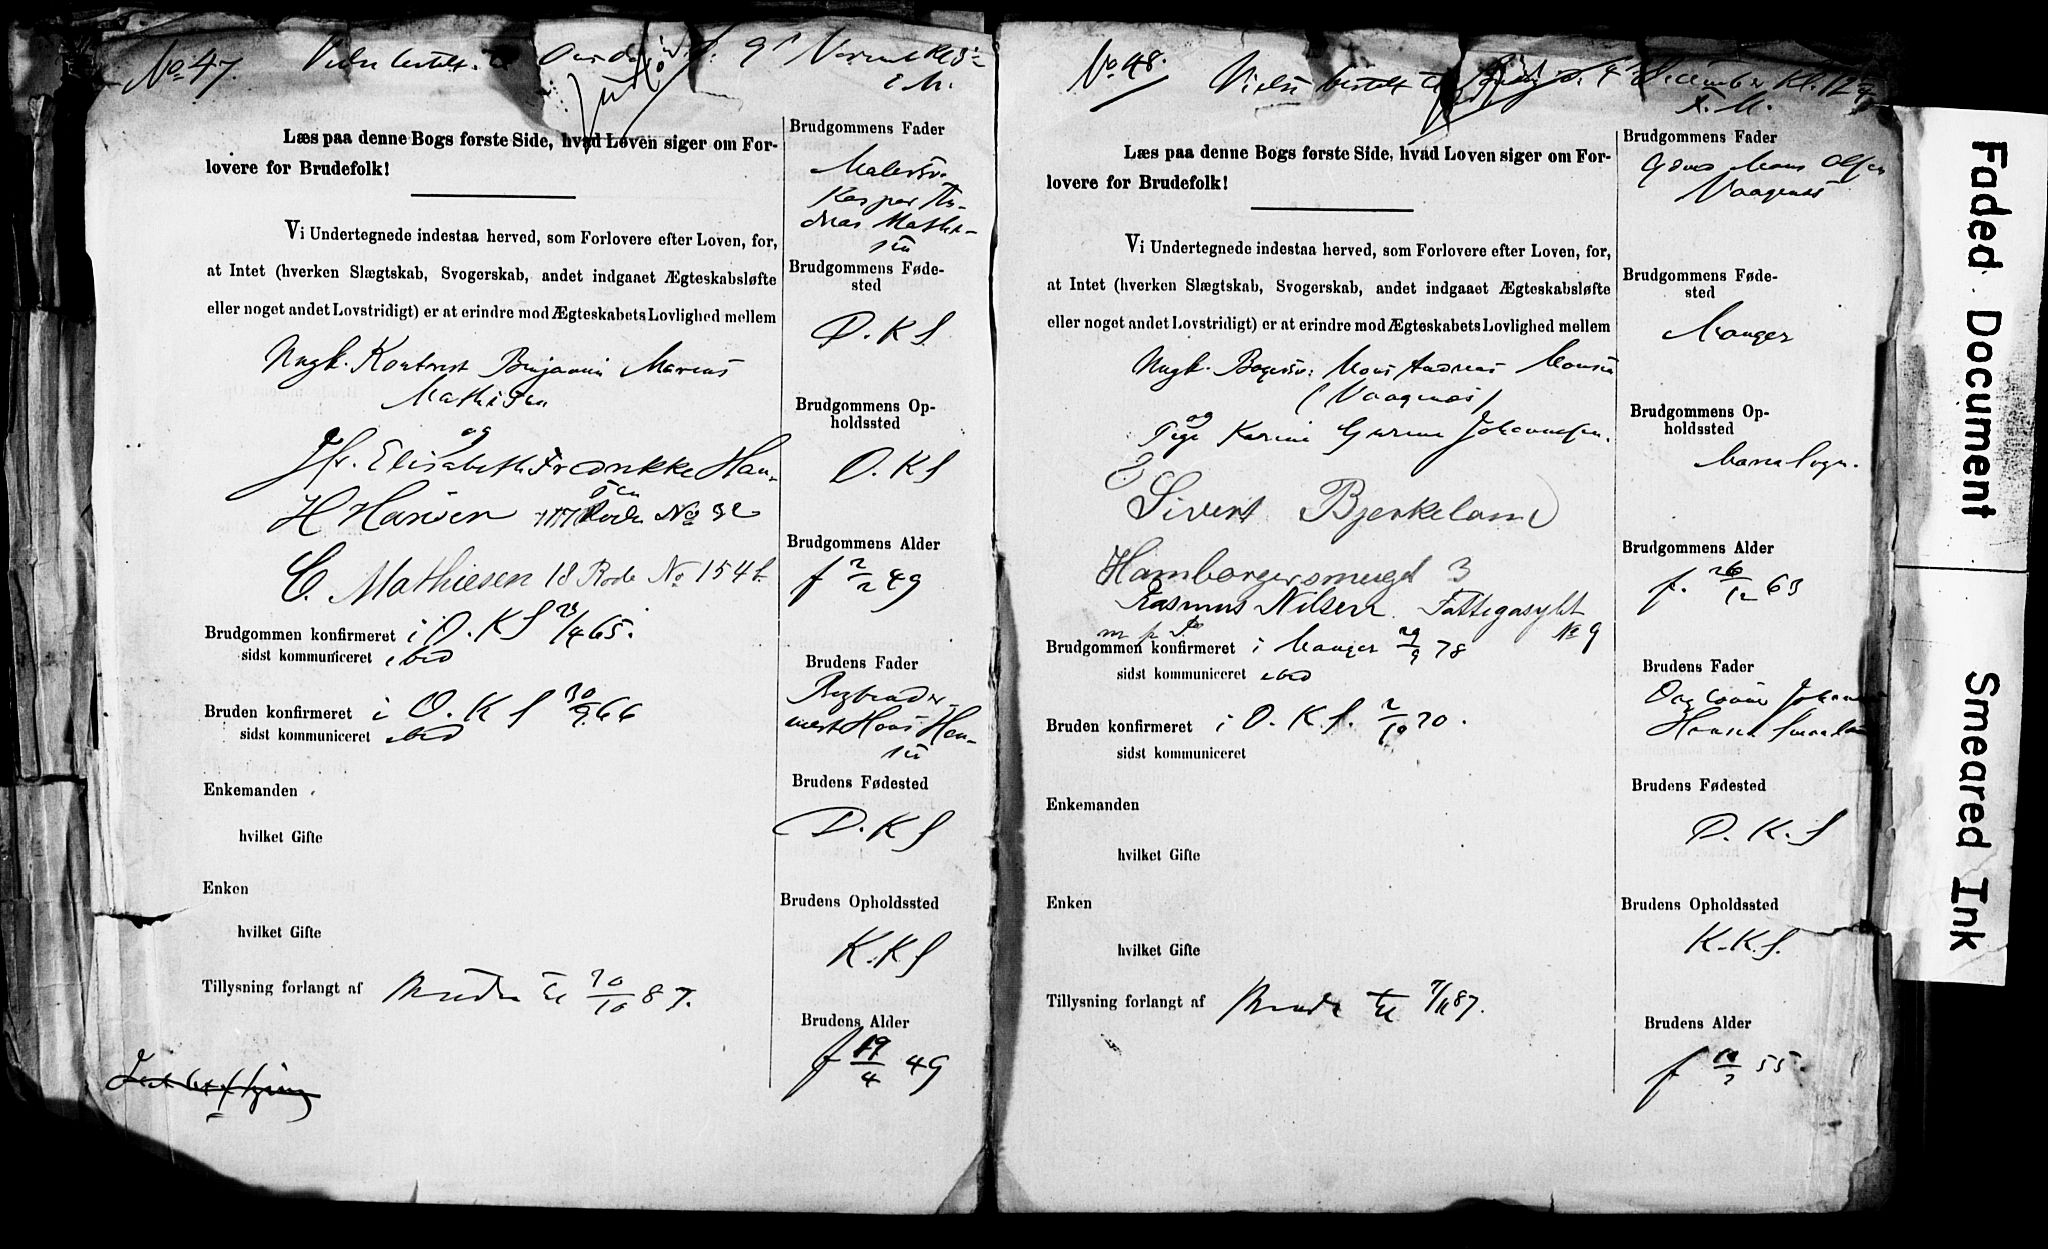 No 47. Vielse bestilt til Onsdag d. 9de Novemb Kl. 5
E. M.
Læs paa denne Bogs første Side, hvad Loven siger om For-
lovere for Brudefolk!
Vi Undertegnede indestaa herved, som Forlovere efter Loven, for,
at Intet (hverken Slægtskab, Svogerskab, andet indgaaet Ægteskabsløfte
eller noget andet Lovstridigt) er at erindre mod Ægteskabets Lovlighed mellem
Ungk. Kontorist Benjamin Marius
Mathisen
og
Jfr. Elisabeth Fredrikke Han-
sen
H Hansen 17 Rode No 32
C. Mathiesen 18 Rode No 154 b
Brudgommen konfirmeret i D. K S 23/4 65.
sidst kommuniceret ibid
Bruden konfirmeret i D. K S 30/9 66
sidst kommuniceret ibid
Enkemanden
hvilket Gifte
Enken
hvilket Gifte
Tillysning forlangt af Bruden til 20/10 87.
Brudgommens Fader
Malersv.
Kasper An-
dreas Mathi-
sen
Brudgommens Føde-
sted
D. K S.
Brudgommens Op-
holdssted
D. K S
Brudgommens Alder
f 2/2 49
Brudens Fader
Hans Han-
sen
Brudens Fødested
D. K S
Brudens Opholdssted
K. K S
Brudens Alder
f 19/4 49
No 48. Vielse bestilt til Søndag d. 4de December Kl. 12
F. M.
Læs paa denne Bogs første Side, hvad Loven siger om For-
lovere for Brudefolk!
Vi Undertegnede indestaa herved, som Forlovere efter Loven, for,
at Intet (hverken Slægtskab, Svogerskab, andet indgaaet Ægteskabsløfte
eller noget andet Lovstridigt) er at erindre mod Ægteskabets Lovlighed mellem
Ungk. Bagersv: Mons Andreas Monsen
(Vaagenæs)
og
Pige Karine Gurine Johannesen.
Sivert Bjerkeland
Hamborgersmuget 3
Rasmus Nilsen Fattigasylet
No 9
m p P
Brudgommen konfirmeret i Manger 29/9 78
sidst kommuniceret ibid
Bruden konfirmeret i D. K. S. 2/10 70.
sidst kommuniceret
Enkemanden
hvilket Gifte
Enken
hvilket Gifte
Tillysning forlangt af Bruden til 7/11 87.
Brudgommens Fader
Gdmd Mons Olsen
Vaagenæs
Brudgommens Føde-
sted
Manger
Brudgommens Op-
holdssted
Maria Sogn.
Brudgommens Alder
f. 26/12 63
Brudens Fader
Johannes
Hansen
Brudens Fødested
D. K. S
Brudens Opholdssted
K. K. S.
Brudens Alder
f 55.
Faded Document
Smeared Ink